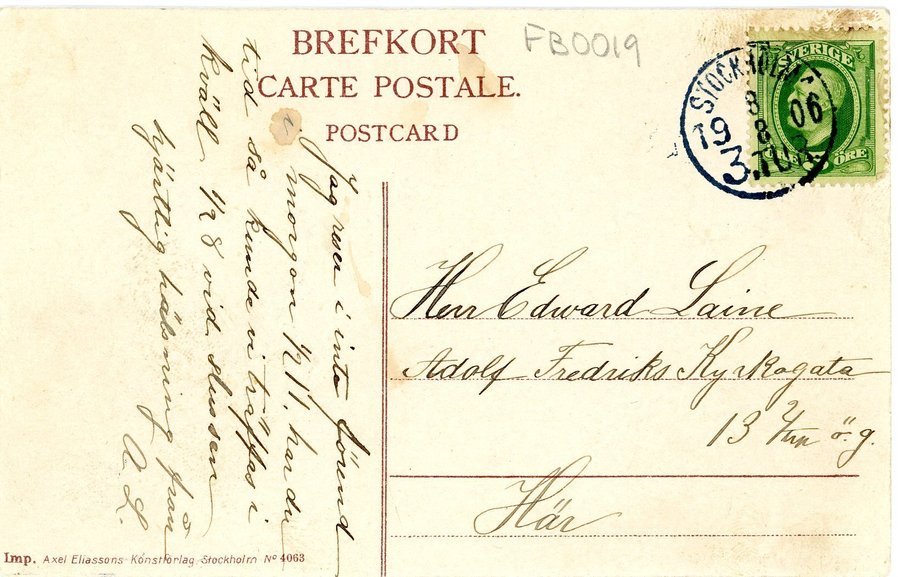 BREFKORT
CARTE POSTALE.
POSTCARD
FB0019
SVERIGE
ÖRE
STOCKHOLM
8
8
19 06
3.TUR
Jag reser i inte förend
i morgon ½11. har du
tid så kunde vi träffas i
kväll ½8 vid slussen
hjärtlig hälsning från
A. L.
Herr Edward Laine
Adolf Fredriks Kyrkogata
13 ö. g.
Här
Imp. Axel Eliassons Konstförlag Stockholm No 4063